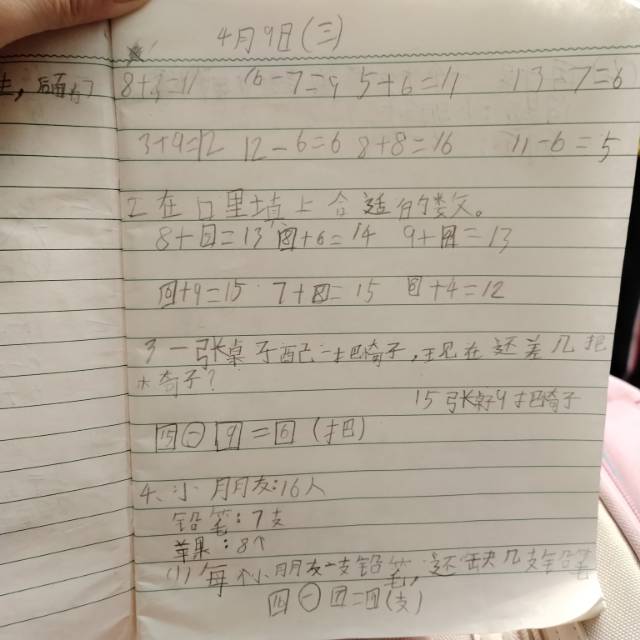 4月9日(三)
16-7=9 5+6=11 13-7=6
3+9=12 12-6=6 8+8=16 11-6=5
2.在口里填上合适的数。
8+□=13 □+6=14 9+□=13
□+9=15 7+□=15 □+4=12
3 一张桌子配一把椅子,现在还差几把
椅子?
15张 9把椅子
(把)
4、小朋友:16人
铅笔:7支
苹果:8个
(1)每个小朋友一支铅笔,还缺几支铅笔
(支)